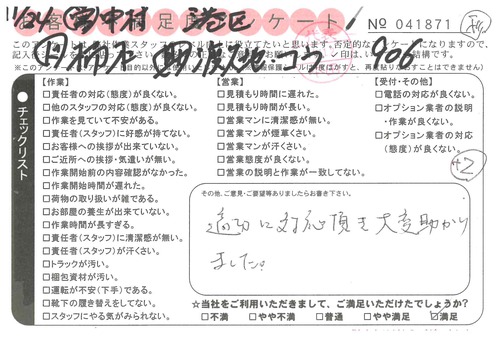 11/24 中村 港区
お客様満足度アンケート!
№ 041871
906
+2
チェックリスト
【作業】
□責任者の対応(態度)が良くない。
□他のスタッフの対応(態度)が良くない。
□作業を見ていて不安がある。
□責任者(スタッフ)に好感が持てない。
□お客様への挨拶が出来ていない。
□ご近所への挨拶・気遣いが無い。
□作業開始前の内容確認がなかった。
□作業開始時間が遅れた。
□荷物の取り扱いが雑である。
□お部屋の養生が出来ていない。
□作業時間が長すぎる。
□責任者(スタッフ)に清潔感が無い。
□責任者(スタッフ)が汗くさい。
□トラックが汚い。
□梱包資材が汚い。
□運転が不安(下手)である。
□靴下の履き替えをしてない。
□スタッフにやる気がみられない。
【営業】
□見積もり時間に遅れた。
□見積もり時間が長い。
□営業マンに清潔感が無い。
□営業マンが煙草くさい。
□営業マンが汗くさい。
□営業態度が良くない。
□営業の説明と作業が一致してない。
【受付・その他】
□電話の対応が良くない。
□オプション業者の説明
・作業が良くない。
□オプション業者の対応
(態度)が良くない。
その他、ご意見・ご要望等ありましたらお書き下さい。
適切に対応頂き大変助かり
ました。
☆当社をご利用いただきまして、ご満足いただけたでしょうか?
□不満 □やや不満 □普通 □やや満足 ☑満足